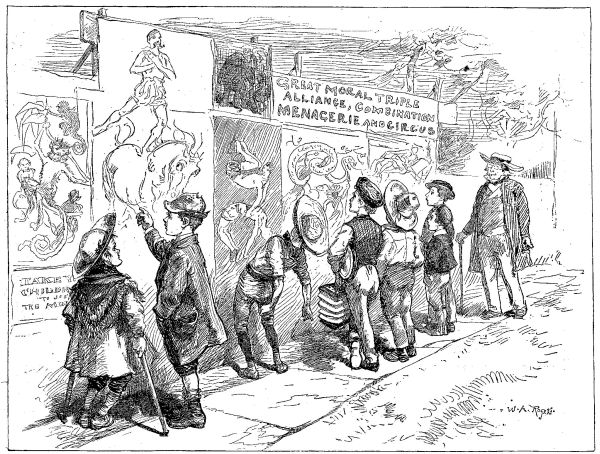 GREAT MORAL TRIPLE
ALLIANCE, COMBINATION
MENAGERIE AND CIRCUS
TAKE T
CHILDR
TO SEE
THE
W. A. Rogers.